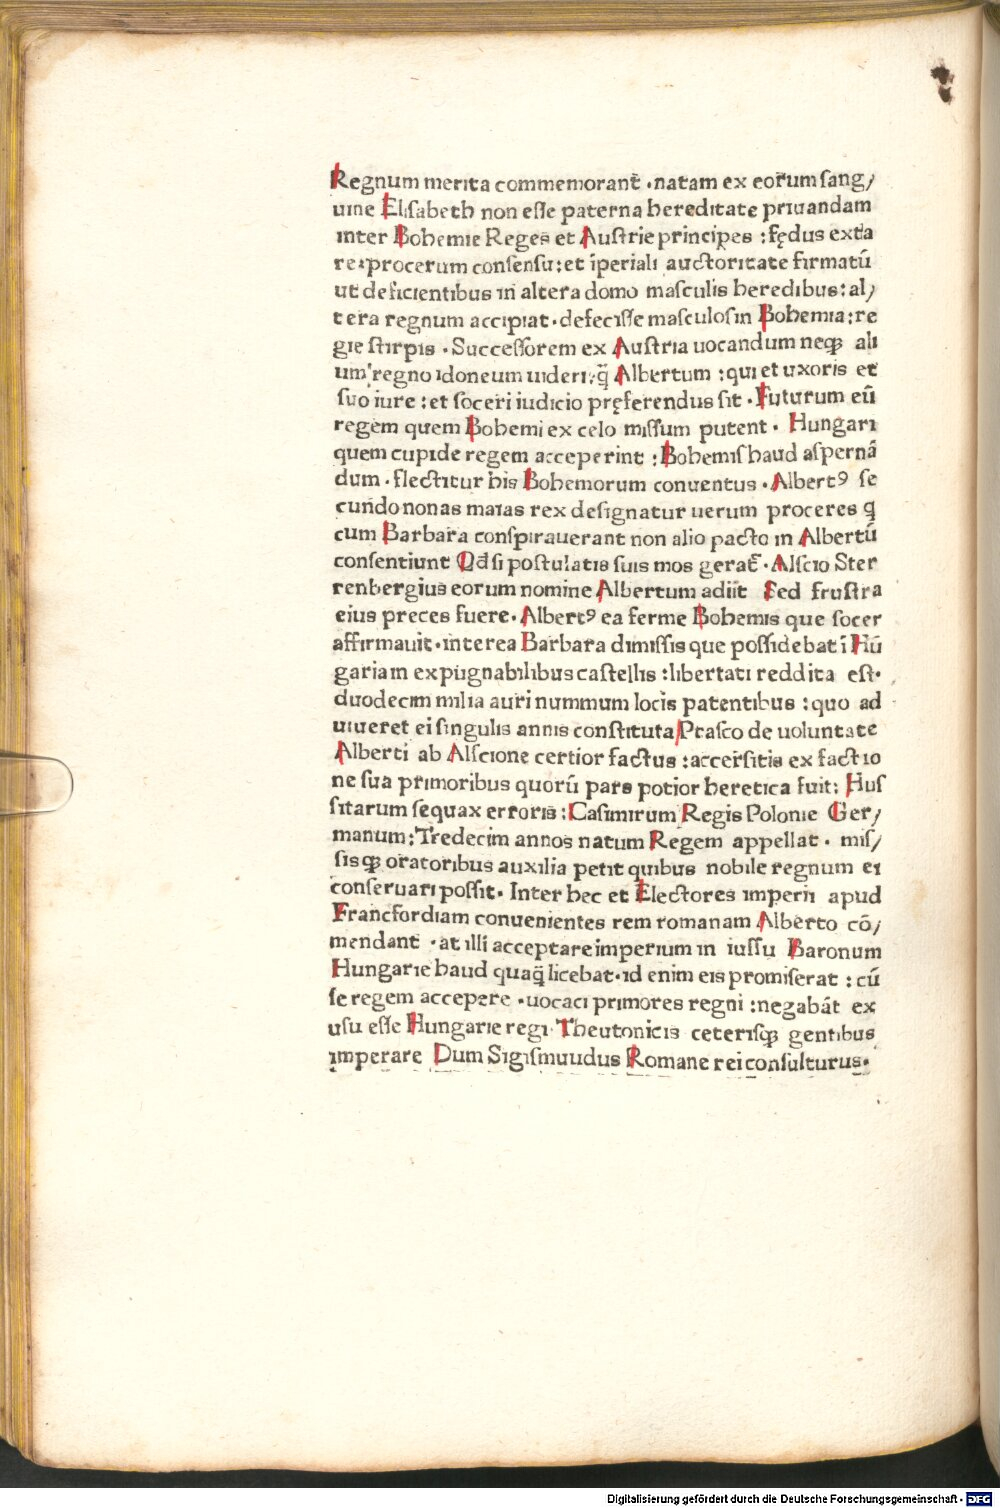 Regnum merita commemorant̄ ·natam ex eorum sang/
uine Elisabeth non esse paterna hereditate priuandam
inter Bohemie Reges et Austrie principes :fędus extīa
re:procerum consensu:et īperiali auctoritate firmatū
ut deficientibus in altera domo masculis heredibus:al/
tera regnum accipiat·defecisse masculos in Bohemia:re
gie stirpis ·Successorem ex Austria uocandum neqꝫ ali
um regno idoneum uideri:q̄̄ Albertum :qui et uxoris et
suo iure :et soceri iudicio pręferendus sit ·Futurum eū
regem quem Bohemi ex celo missum putent· Hungari
quem cupide regem acceperint :Bohemis haud aspernā
dum·flectitur his Bohemorum conuentus ·Albertꝰ se
cundo nonas maias rex designatur uerum proceres q̄
cum Barbara conspirauerant non alio pacto in Albertū
consentiunt Qd̄ si postulatis suis mos gerat̄·Alscio Ster
renbergius eorum nomine Albertum adiit Sed frustra
eius preces fuere·Albertꝰ ea ferme Bohemis que socer
affirmauit·interea Barbara dimissis que possidebat ī Hū
gariam expugnabilibus castellis :libertati reddita est·
duodecim milia auri nummum locis patentibus :quo ad
uiueret ei singulis annis constituta Ptasco de uoluntate
Alberti ab Alscione certior factus :accersitis ex factio
ne sua primoribus quorū pars potior heretica fuit: Hus
sitarum sequax erroris :Casimirum Regis Polonie Ger/
manum:Tredecim annos natum Regem appellat· mis/
sisqꝫ oratoribus auxilia petit quibus nobile regnum ei
conseruari possit· Inter hec et Electores imperii apud
Francfordiam conuenientes rem romanam Alberto cō/
mendant ·at illi acceptare imperium in iussu Baronum
Hungarie haud quaq̄ licebat·id enim eis promiserat :cū
se regem accepere ·uocati primores regni :negabāt ex
usu esse Hungarie regi Theutonicis ceterisqꝫ gentibus
imperare Dum Sigismuudus Romane rei consulturus·
Digitalisierung gefördert durch die Deutsche Forschungsgemeinschaft - DFG